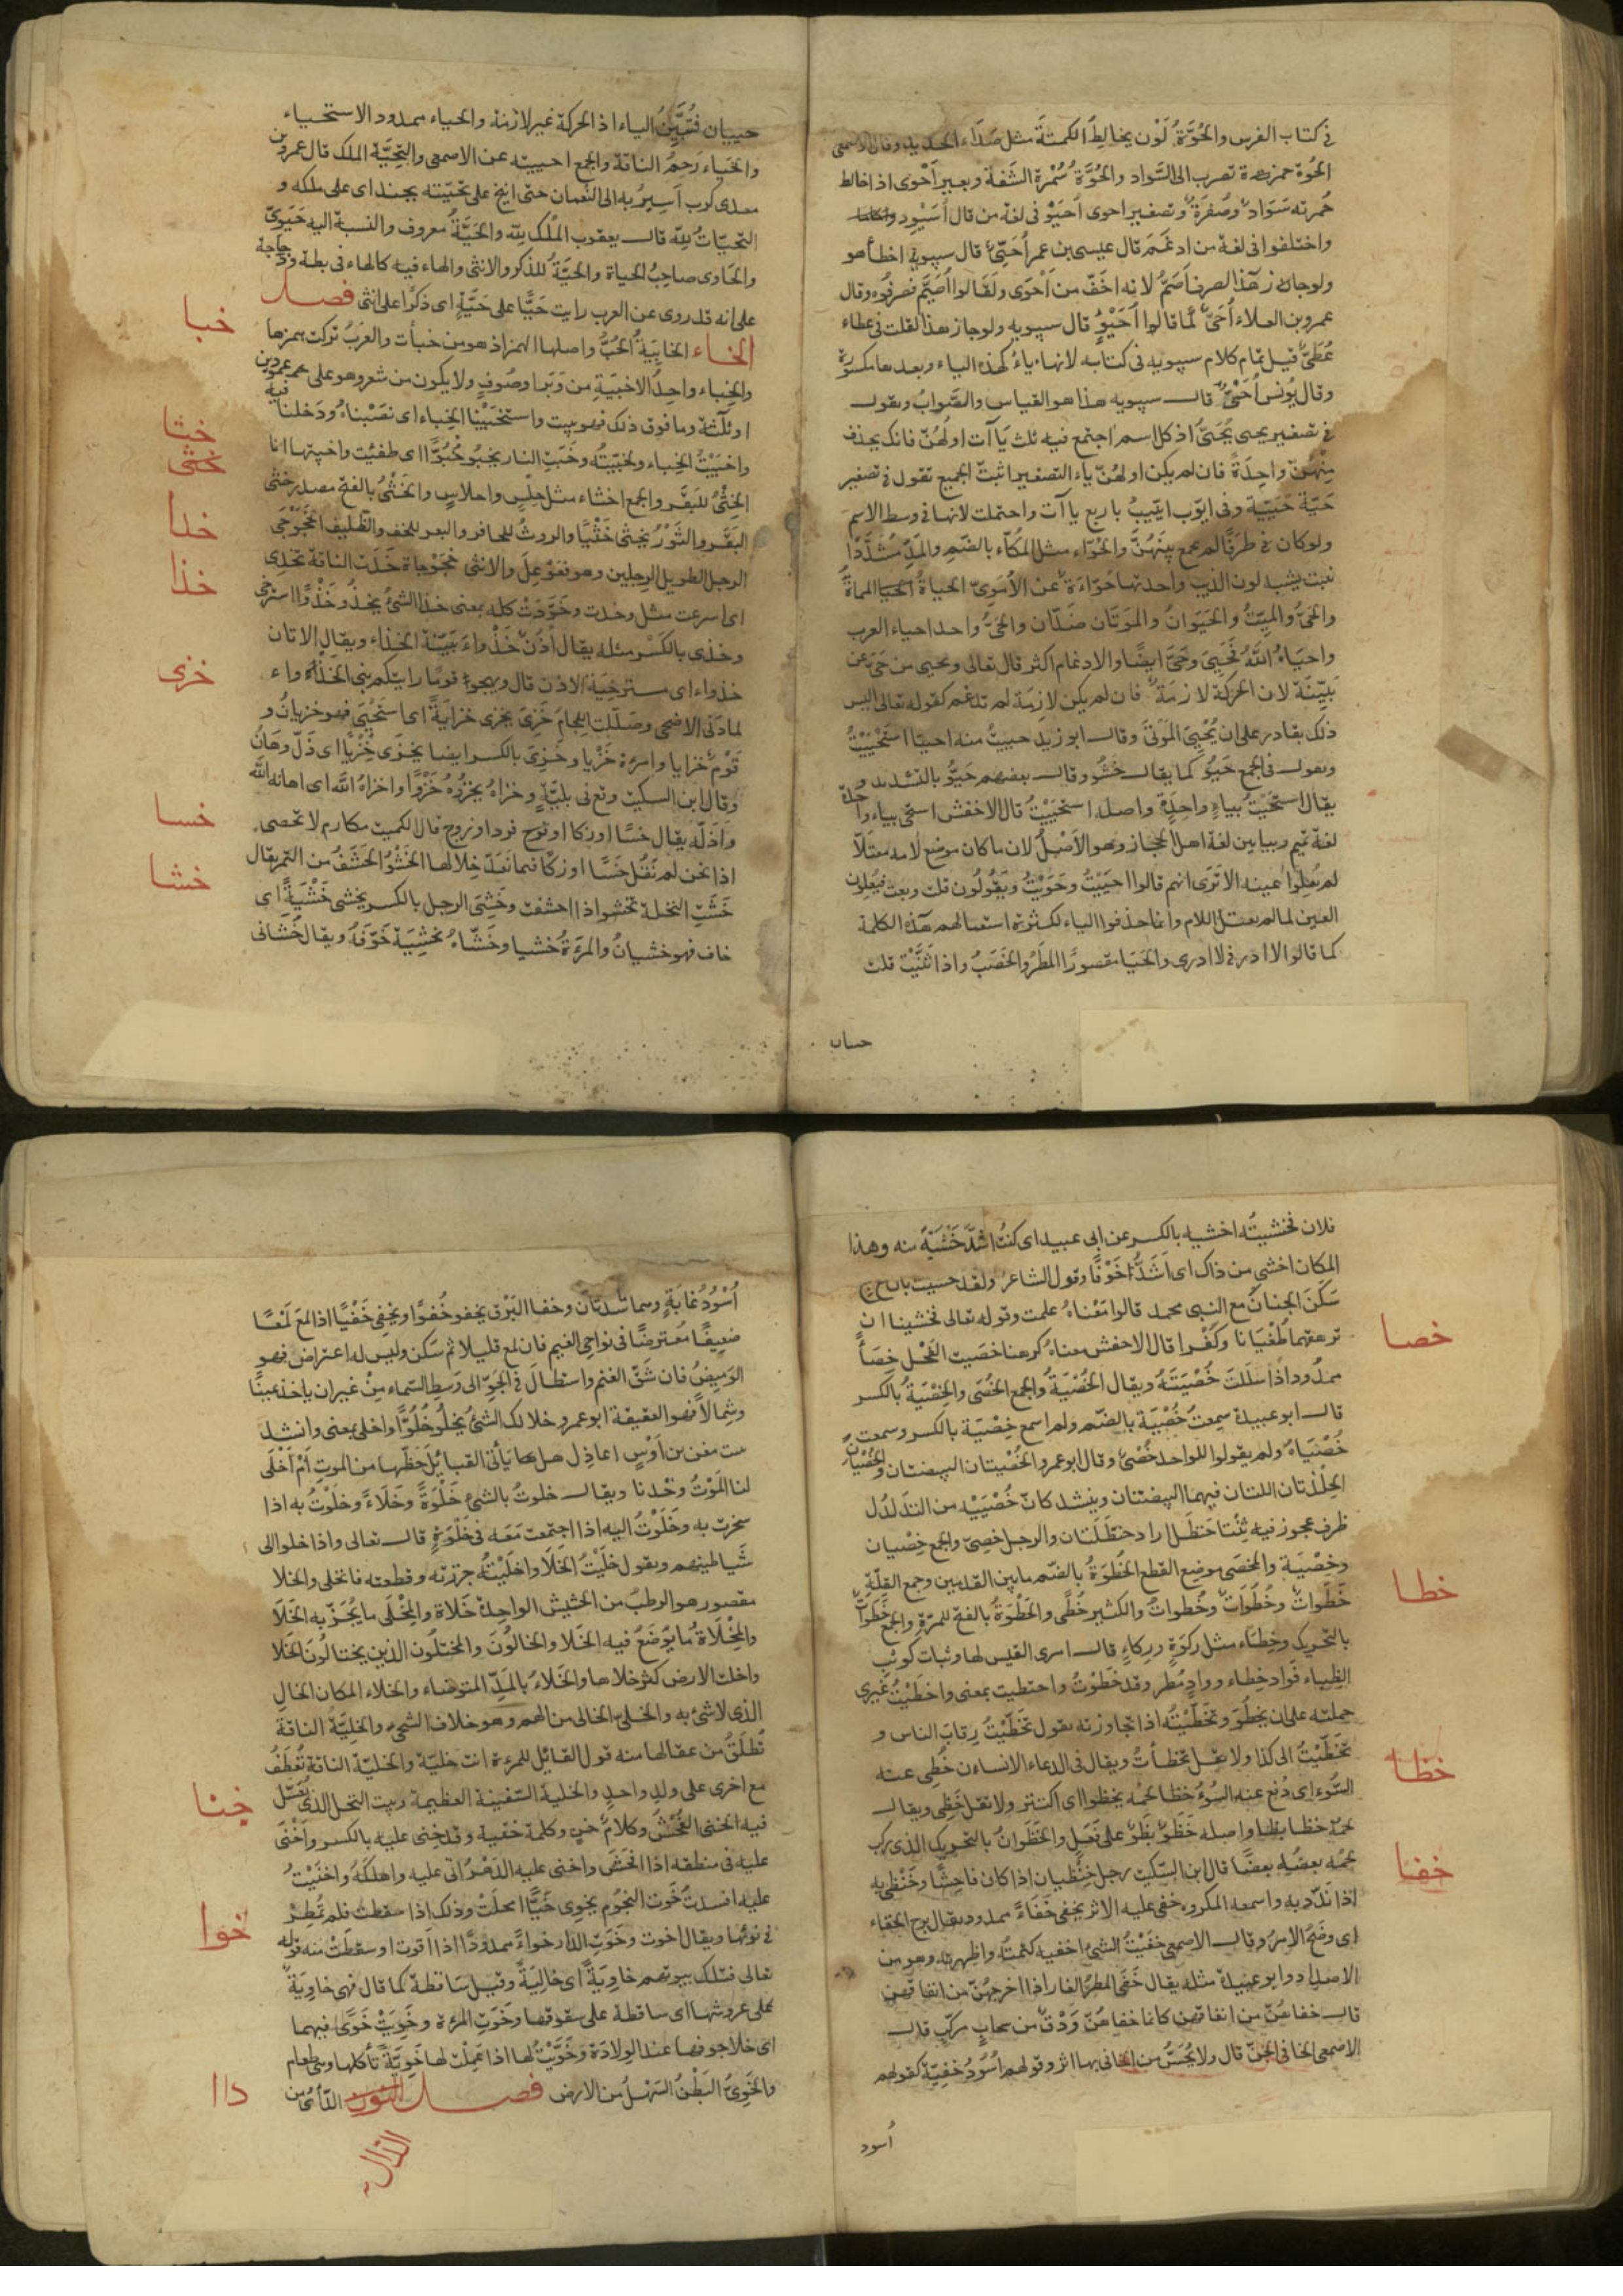 في كتاب الفرس والحُوَّةُ لَوْن يخالِطُ الكمتةَ مثل صَدَاء الحديد وقال الاصمعى
الحُوة حمرة تضرب الى السَّواد والحُوَّة سُمْرة الشَفة وبعير اَحْوى اذا خالط
حُمرته سَوَاد وصُفرَة وتصغير احوى اُحَيْوٍ فى لغة من قال اُسَيْوِد
واختلفوا فى لغة من ادغَم قال عيسى بن عمر اُحَيِّىٌ قال سيبويه اخطأ هو
ولو جاز هذا لصرف اَصَمُّ لانه اخَفّ من اَحْوَى ولقالوا اُصَيمٌ فصرفُوه وقال
عمرو بن العلاء اُحَىٍّ كما قالوا اُحَيْوٍ قال سيبويه ولو جاز هذا لقلت فى عطاء
عُطَىٍّ قيل تمام كلام سيبويه فى كتابه لانها ياءُ كهذه الياء وبعدها مكسورة
وقال يُونس اُحَىُّ قال سيبويه هذا هو القياس والصَّوابُ وتقول
فى تصغير يحيى يُحَيىّ اذ كل اسم اجتمع فيه ثلث يَاآت اولهُنّ فانك يحذف
مِنْهُنّ واحِدَةً فان لم يكن اولهُنّ ياء التصغير اثبتّ الجميع تقول فى تصغير
حَيّة حُيَيّة وفى ايّوب اييّيبُ باربع ياآت واحتملت لانها فى وسط الاسم
ولو كان فى طرَفٍ لم يجمع بينَهُنَّ والحُوّاء مثل المُكّاء بالضّم والمَدِّ مُشَدَّدًا
نبت يشبه لون الذيب واحدتها حُوّاءَة عن الاُمَوِىّ الحياةُ المماة
والحَىُّ والميِّتُ والحَيَوَانُ والمَوَتَان ضدّان والحَىُّ واحد احياء العرب
واحيَاهُ اللهُ فَحَيِىَ وحَىَّ ايضًا والادغام اكثر قال تعالى ويحيى من حَىَّ عن
بَيِّنَة لان الحركة لازمَة فان لم يكن لازمة لم تدغم كقوله تعالى اليس
ذلك بقادر على ان يُحْيِىَ المَوتى وقال ابو زيد حييتُ منه احيَا استَحْيَيْتُ
وتقول فى الجمع حَيُوا كما يقال خشُو وقال بعضهم حَيُّو بالتشديد
يقال استحَيْتُ بياءٍ واحِدَةٍ واصله استَحْيَيْتُ قال الاخفش استحى بياء واحدة
لغة تميم وبيايين لغة اهل الحجاز وهو الاَصْلُ لان ما كان موضع لامه معتلّا
لم يُعِلّوا عينه الا تَرَى انهم قالوا احيَيْتُ وحَوَيْتُ ويَقُولُون قلت وبعت فيُعِلون
العين لما لم يعتل اللام وانما حذفوا الياء لكثرة استعمالهم هذه الكلمة
كما قالوا لا ادر فى لا ادرى والحَيَا مقصورًا المَطَرُ والخَصَبُ واذا ثَنَّيْتَ قلت
حييان
حييان فتُبَيّنُ الياء اذ الحركة غير لازمة والحياء ممدود الاستحياء
والحَيَاء رَحِمُ الناقة والجمع احيية عن الاصمعى والتحِيَّة الملك قال عمرو بن
معدى كرب اَسِيرُ به الى النعمان حتى انيخ على تحيّته بجند اى على ملكه و
التحيّاتُ للّه قال يعقوب المُلْكُ للّه والحَيَّةُ معروف والنسبة اليه حَيَوِىّ
والحَاوى صاحِبُ الحياة والحَيَّةُ للذكر والانثى والهاء فيه كالهاء فى بطة ودجاجة
على انه قد روى عن العرب رايت حَيًّا على حَيَّةٍ اى ذكرًا على انثى فصل
خبا
الخاء الخابِيَةُ الحُبُّ واصلها الهمز اذ هو من خبأت والعَرَبُ تركت همزها
والخِباء واحِدُ الاخبَيةِ مِن وَبَر اوصُوفٍ ولا يكون من شعر وهو على عمودين
او ثلثة وما فوق ذلك فهو بيت واستخبَيْنا الخِباء اى نصَبْناهُ ودَخلنا فيه
واخبَيْتُ الخِباء وخَبَّيْتُه وخَبَتِ النار يخبُو خُبُوًّا اى طفئت واخبيتها انا
خثا
خثى
الخِثْىُ للبَقَر والجمع اخثاء مثل حِلْسٍ واحلاسٍ والخَثْىُ بالفتح مصدر خثى
البَقَر والثَوْرُ يخثى خَثْيًا والروثُ للحافر والبعر للخف والظِليف الخجَوْجَى
خدا
الرجل الطويل الرجلين وهو فعَوْعَلٌ والانثى خجَوْجاة خَدَتِ الناقة تخدِى
خذا
اى اسرعت مثل وخدت وخَوَّدَتْ كله بمعنى خذا الشئُ يخذُو خَذْوًا استرخى
وخذِى بالكَسْرِ مثله يقال اُذُنٌ خَذْوَاء بَيّنة الخِذاء ويقال للاتان
خذواء اى مسترخِيَة الاذن قال ويهجوا قومًا رايتكم بنى الخذْواء
خزى
لما دَنى الاضحى وصَلّلَت اللِحامُ خزِىَ يخزى خزايَةً اى استَحْيَى فهو خزيانُ و
قَوْم خزايا وامرءة خَزْيا وخزِىَ بالكسر ايضا يخزَى خِزْيًا اى ذَلّ وهَانَ
وقال ابن السكيت وقع فى بليّةٍ وخزاهُ يخزُوهُ خَزْوًا واخزاهُ اللهُ اى اهانه الله
خسا
وَاذَلّه يقال خسًا او زكا او زوج فردا وزوج قال الكميت مكارم لا تحصى
اذا نحن لم نَقُل خَسًا او زَكًا فيما نَعُدّ خِلالها الخَشْوُ الحَشَفُ من التمر يقال
خشا
خَشَتِ النخلة تخشو اذا احشفت وخَشِىَ الرجل بالكسر يخشى خَشْيَةً اى
خاف فهو خشيانُ والمرءَةُ خَشيا وخَشّاهُ تخشِيَة خَوَّفَهُ ويقال خَشانى
فلان فخشيتُه اخشيه بالكسر عن ابى عبيد اى كنتُ اشَدَّ خَشْيَةً منه وهذا
المكان اخشى من ذاك اى اَشَدُّ خَوْفًا وقول الشاعر ولقد خشيت بان
سَكَنَ الجنان مع النبى محمد قالوا مَعْناهُ علمت وقوله تعالى فخشينا ان
خصا
ترهقهما طُغْيَانا وكُفْرا قال الاخفش معناه كرهنا خصَيت الفَحْل خِصَاءً
ممدُود اذا سَلَلتَ خُصْيَتَهُ ويقال الخُصْيَةُ والجمع الخُصَى والخِصْيَةُ بالكسر
قال ابو عبيدة سِمِعتُ خُصْيَة بالضّم ولم اسمع خِصْيَة بالكسر وسمعت
خُصْيَاهُ ولم يقولوا للواحد خُصْىٌ وقال ابو عمرو الخُصْيتان البيضتان والخُصْيَان
الجِلدتان اللتان فيهما البيضتان وينشد كانّ خُصْيَيْه من التَدَلدُل
ظرف عجوز فيه ثِنْتا حَنظَل اراد حنظَلَتان والرجل خصِىّ والجمع خِصْيان
خطا
وخِصْيَة والمخصَى موضع القطع الخُطْوَةُ بالضّم ما بين القدمين وجمع القِلّة
خَطْوَاتٌ وخُطَوَاتٌ وخُطواتٌ والكثير خُطًى والخَطْوَةُ بالفتح للمَرّة والجمع خَطَواتٌ
بالتحريك وخِطَاء مثل ركْوَةٍ ورِكاءٍ قال امرئ القيس لها وثبات كوثب
الظِباء فَوادٍ خِطاء ووادٍ مُطِر وقد خَطَوْتُ واختطيت بمعنى واخطَيْتُ غيرى
حملته على ان يخطُوَ وتخطَّيْتُه اذا تجاوزته يقول تخطَّيْتُ رِقابَ الناس و
تخَطَّيْتُ الى كذا ولا يقل تخَطّأتُ ويقال فى الدعاء للانسان خُطِى عنه
خظا
السُّوء اى دُفِعَ عنه السُوءُ خَظا لحمه يخظوا اى اكتنز ولا تقل خَظِى ويقال
لحمه خظا بظا واصله خَظَوَ بَظَوَ على فَعَلٍ والخَظَوانُ بالتحريك الذى ركب
لحمُه بعضُه بعضًا قال ابن السكيت رجل خِنظيان اذا كان فاحِشًا وخَنْظى به
خفا
اذا نَدّد به واسمعه المكروه خفى عليه الاثر يخفى خَفَاءً ممدود يقال برح الخفاء
اى وضَحَ الامرُ وقال الاصمعى خفَيْتُ الشئ اخفيه كتمتُه واظهرته وهو من
الاضداد وابو عبيدة مثله يقال خَفَى المطرُ الفار اذا اخرجهُنّ من انفاقهن
قال خفاهُنّ من انفاقهن كانما خفاهُنّ وَدْقٌ من سحابٍ مركّبٍ قال
الاصمعى الخافى الجنّ قال ولا يُحَسُّ من الخافى بها اثر وقولهم اُسُودُ خفِيّة كقولهم
اُسود
اُسْوُدُ غابَةٍ وهما مأسدتان وخفا البَرْق يخفو خُفوًا ويخفى خَفْيًا اذا لمع لَمْعًا
ضعِيفًا مُعْترضًا فى نواحى الغيم فان لمع قليلا ثم سَكن وليس له اعتراض فهو
الوَمِيضُ فان شَقّ الغنم واستطالَ فى الجَوّ الى وسَطِ السّماء مِنْ غير ان ياخذ يمينًا
وشِمالًا فهو العقيقة ابو عمرو خلا لك الشئُ يخلُو خُلُوًّا واخلى بمعنى وانشد
بيت معن بن اَوْسٍ اعاذِل هل يَأتى القبائل حظّها من الموتِ اَمْ اَخْلَى
لنا المَوْتُ وحْدنا ويقال خلوتُ بالشئ خَلْوَةً وخَلَاءً وخَلَوْتُ به اذا
سخرت به وخَلَوْتُ اليه اذا اجتمعت مَعَه فى خَلْوَةٍ قال تعالى واذا خلوا الى
شَيَاطينهم ويقول خَلَيْتُ الخَلَا واخلَيْتُه جزرته وقطعته فانخلى والخلا
مقصور هو الرطبُ من الحشيش الواحِدة خَلَاة والمِخْلَى ما يُجَزّ به الخَلَا
والمِخْلَاةُ ما يُوضَعُ فيه الخَلَا والخالُونَ والمختلُون الذين يختالُونَ الخَلا
واخلت الارض كثر خلاها والخَلاءُ بالمَدِّ المتوضاء والخلاء المكان الخالِ
الذى لا شئ به والخلىّ الخالى من الهم وهو خلاف الشجىّ والخليّة الناقة
تُطلَقُ من عقالها منه قول القائل للمرءة انت خليّة والخليّة الناقة تُعطَفُ
مع اخرى على ولدٍ واحدٍ والخلية السّفينة العظيمة وبيت النحل الذى يُعَسّل
خنا
فيه الخنى الفُحْشُ وكلامٌ خنٍ وكلمة خنية وقد خنِى عليه بالكسر واَخْنَى
عليه فى منطقه اذا افحَشَ واخنى عليه الدَهْرُ اتى عليه واهلكَهُ واخنَيْتُ
خوا
عليه افسدتُ خَوت النجُوم يخوى خَيًّا امحلَتْ وذلك اذا سقطت فلم تُمطِرْ
فى نوئها ويقال اخوت وخَوَتِ الدار خواءً ممدودًا اذا اَقوت او سقطَتْ منه قوله
تعالى فتلك بيوتهم خاوِيَةً اى خالِيَةً وقيل ساقطة كما قال فهى خاوِيَة
على عروشها اى ساقطة على سقوفها وخَوَتِ المرءَة وخَوِيَتْ خَوًى فيهما
اى خلا جوفها عند الولادَة وخَوَّيْتُ لها اذا عَمِلْتَ لها خَوِيَّةً تأكلها وهى طعام
دأا
والخَوِىُّ البَطْنُ السَهلُ من الارض فصل
الذال